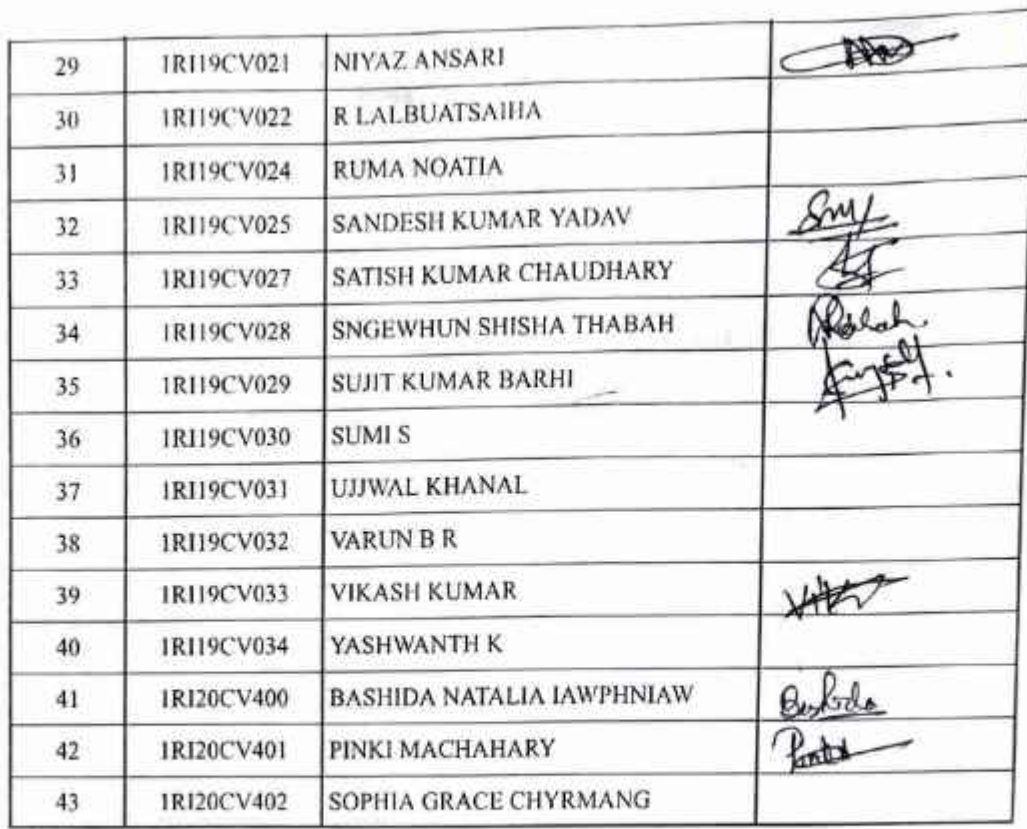 29 1RI19CV021 NIYAZ ANSARI
30 1RI19CV022 R LALBUATSAIHA
31 1RI19CV024 RUMA NOATIA
32 1RI19CV025 SANDESH KUMAR YADAV
33 1RI19CV027 SATISH KUMAR CHAUDHARY
34 1RI19CV028 SNGEWHUN SHISHA THABAH Thabah
35 1RI19CV029 SUJIT KUMAR BARHI
36 1RI19CV030 SUMI S
37 1RI19CV031 UJJWAL KHANAL
38 1RI19CV032 VARUN B R
39 1RI19CV033 VIKASH KUMAR
40 1RI19CV034 YASHWANTH K
41 1RI20CV400 BASHIDA NATALIA IAWPHNIAW Bashida
42 1RI20CV401 PINKI MACHAHARY
43 1RI20CV402 SOPHIA GRACE CHYRMANG